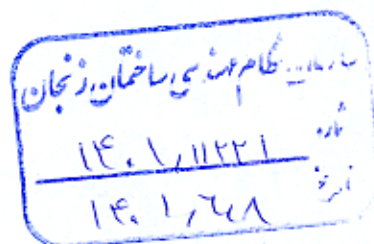 سازمان نظام مهندسی ساختمان زنجان
شماره ۱۴۰۱٫۱۱۲۲۱
تاریخ ۱۴۰۱٫۶٫۸